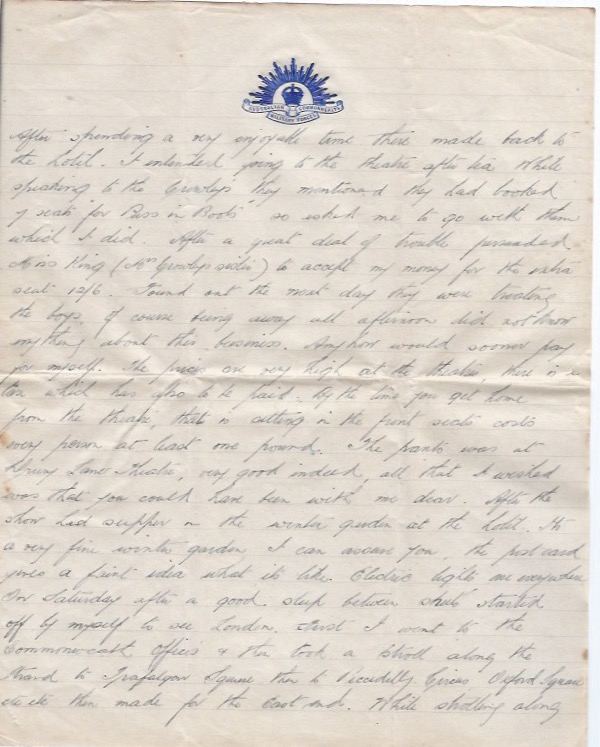 AUSTRALIAN COMMONWEALTH
MILITARY FORCES
After spending a very enjoyable time there made back to
the hotel. I intended going to the theatre after tea. While
speaking to the Growleys they mentioned they had booked
7 seats for "Puss in Boots" so asked me to go with them
which I did. After a great deal of trouble persuaded
Miss King (Mrs Growleys sister) to accept my money for the extra
seat 12/6. Found out the next day they were treating
the boys, of course being away all afternoon did not know
anything about this business. Anyhow would sooner pay
for myself. The prices are very high at the theatre, there is a
tax which has also to be paid. By the time you get home
from the theatre, that is sitting in the front seats costs
every person at least one pound. The panto was at
Drury Lane Theatre, very good indeed, all that I wished
was that you could have been with me dear. After the
show had supper in the winter garden at the hotel. Its
a very fine winter garden I can assure you, the postcard
gives a faint idea what its like. Electric lights are everywhere
On Saturday after a good sleep between sheets started
off by myself to see London. First I went to the
Commonwealth Offices & then took a stroll along the
Strand to Trafalgar Square then to Piccadilly Circus Oxford Square
etc etc then made for the East end. While strolling along